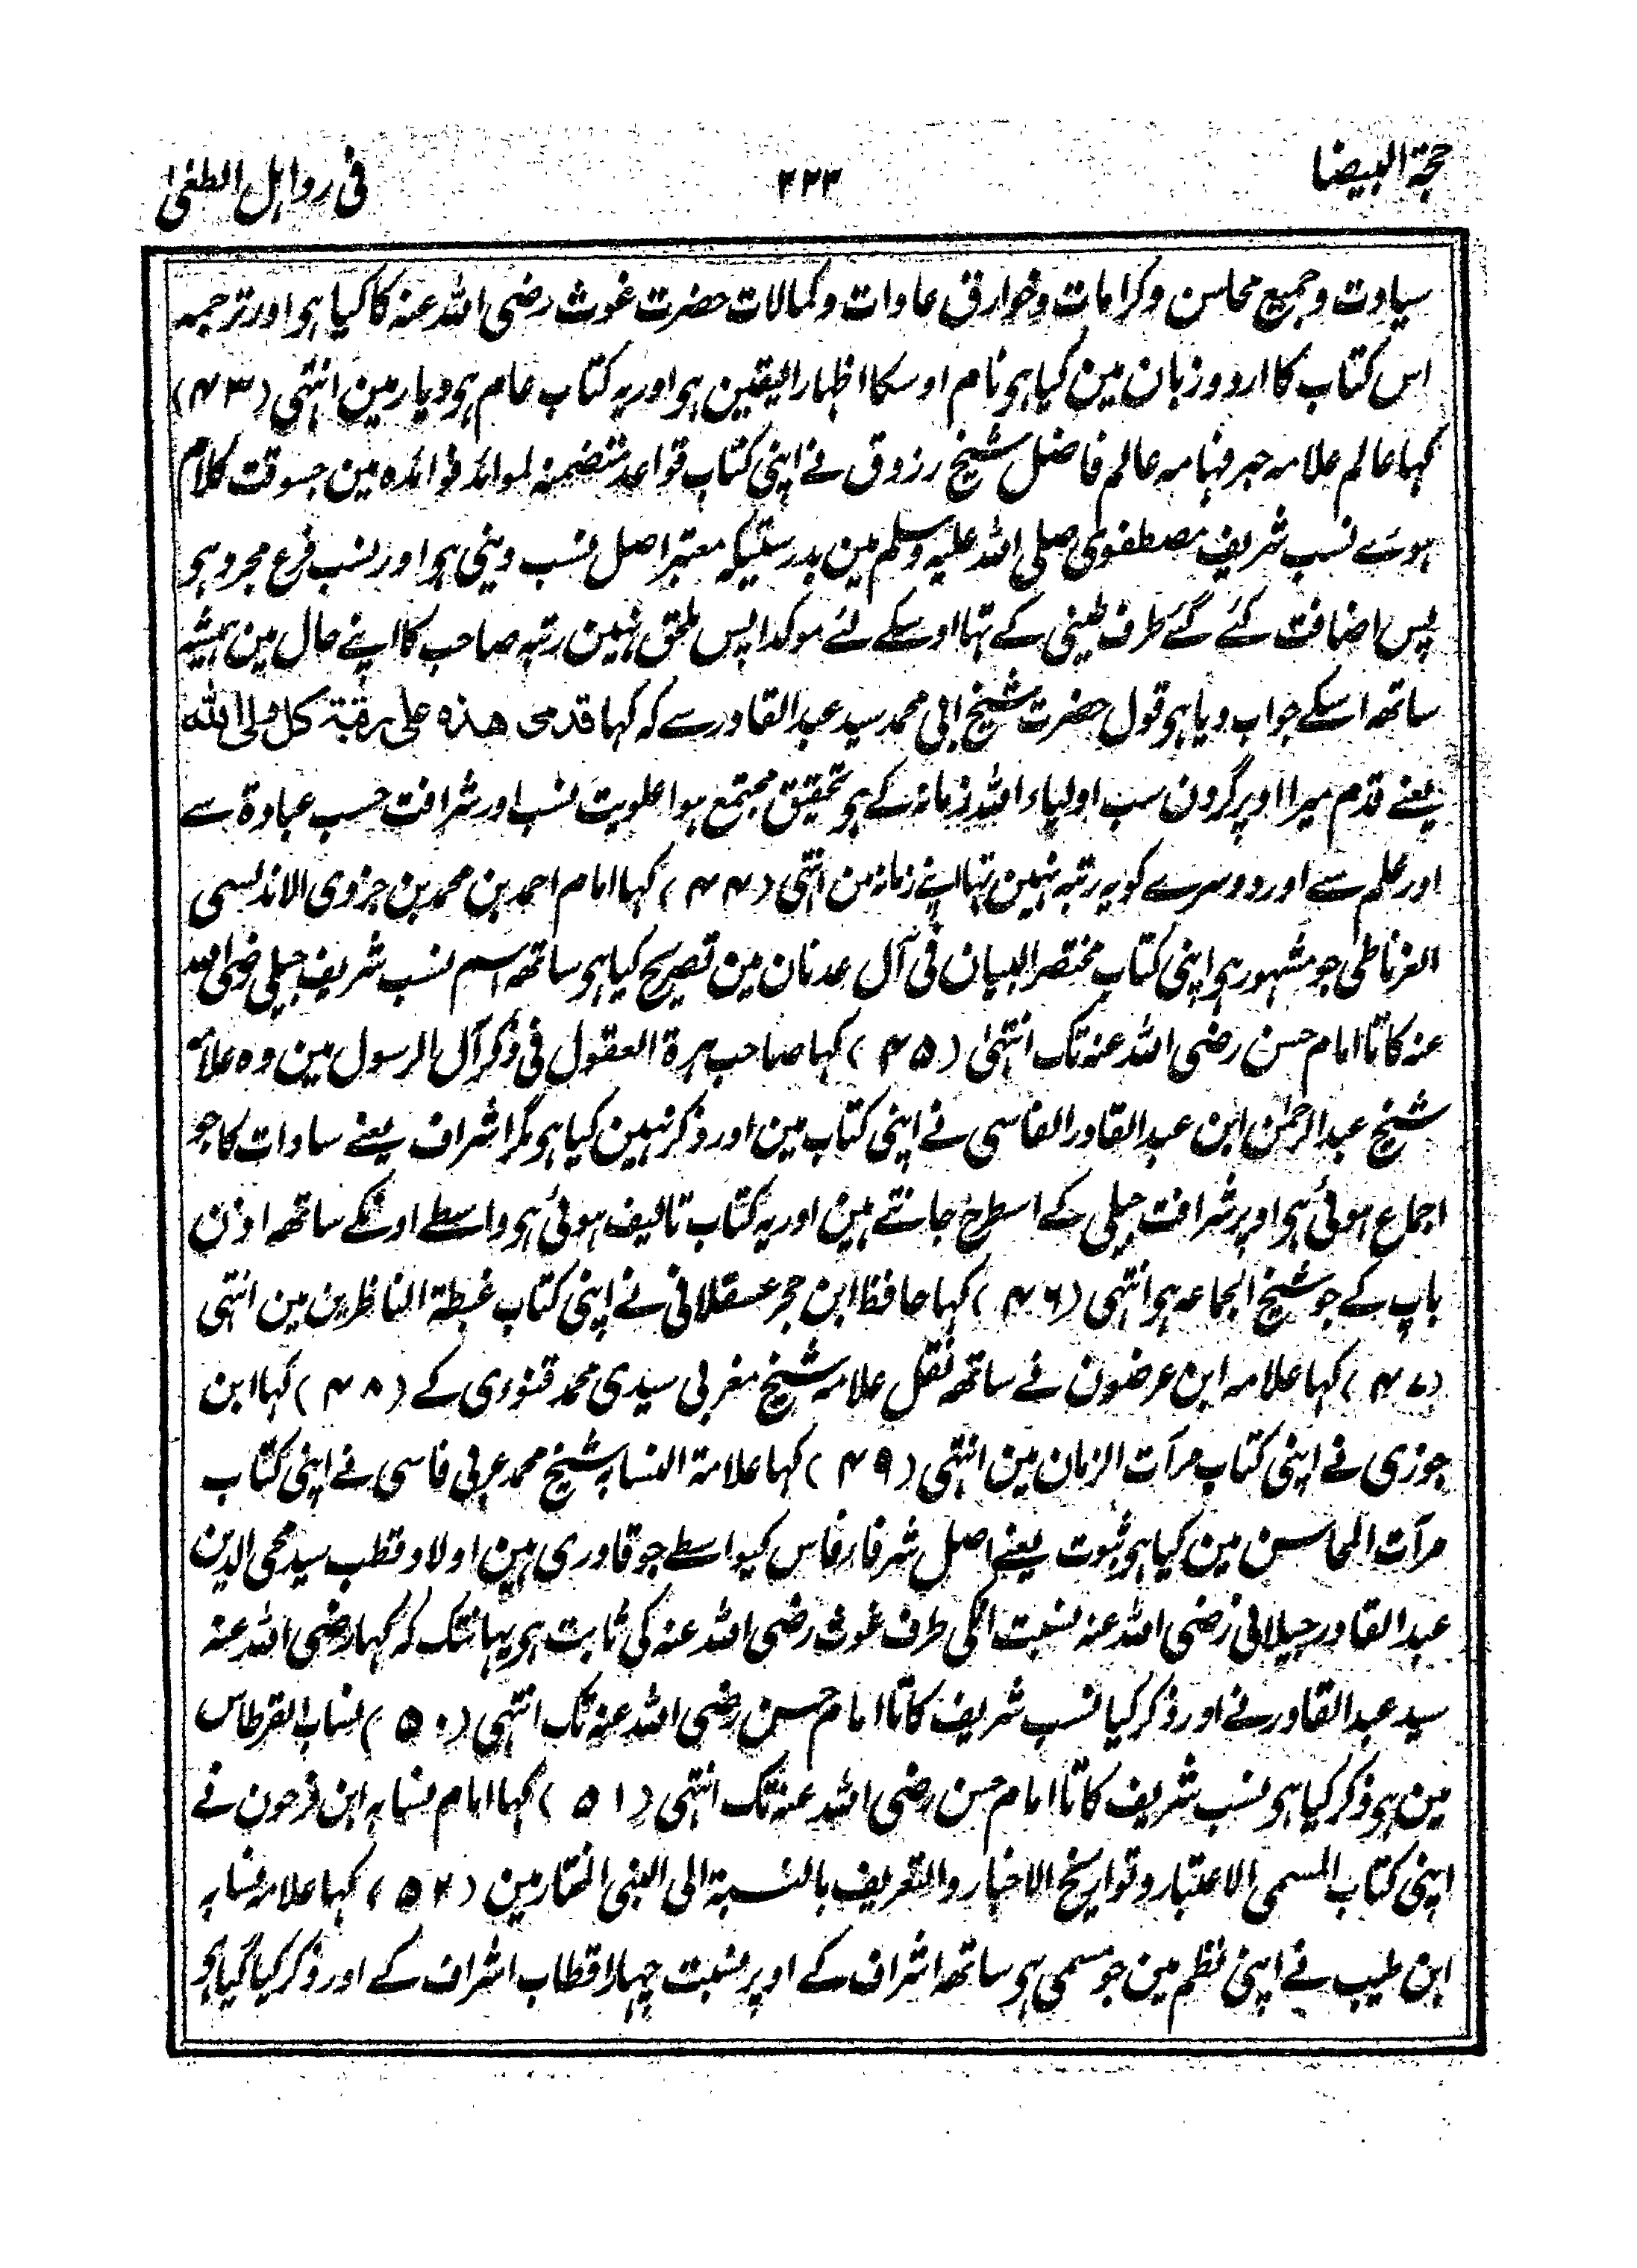 حجة البیضا
۲۲۳
فی رد اہل الطغیٰ
سیادت و جمیع محاسن و کرامات و خوارق عادات و کمالات حضرت غوث رضی اللہ عنہ کا کیا ہی اور ترجمہ
اس کتاب کا اردو زبان مین کیا ہی نام اوسکا اظہار الیقین ہی اور یہ کتاب عام ہی دیار مین انتہی (۴۳)
کہا عالم علامہ حبر فہامہ عالم فاضل شیخ رزوق نے اپنی کتاب قواعد متضمنہ لموائد فوائدہ مین جسوقت کلام
ہوے نسب شریف مصطفوی صلی اللہ علیہ وسلم مین بدرستیکہ معتبر اصل نسب دینی ہی اور نسب فرع مجرد ہی
پس اضافت کئے گئے طرف طینی کے تہا اوسکے لئے موکدا پس ملحق نہین رتبہ صاحب کا اپنے حال مین ہمیشہ
ساتھ اسکے جواب دیا ہی قول حضرت شیخ ابی محمد سید عبد القادر سے کہ کہا قدمی ھذہ علی رقبۃ کل ولی اللہ
یعنے قدم میرا اوپر گردن سب اولیاء اللہ زمانہ کے ہی تحقیق مجتمع ہوا علویت نسب اور شرافت حسب عبادة سے
اور علم سے اور دوسرے کو یہ رتبہ نہین تہا اپنے زمانہ من انتہی (۴۴) کہا امام احمد بن محمد بن جزوی الاندلسی
الغرناطی جو مشہور ہی اپنی کتاب مختصر البیان فی آل عدنان مین تصریح کیا ہی ساتھ اسم نسب شریف جیلی رضی اللہ
عنہ کا تا امام حسن رضی اللہ عنہ تک انتہیٰ (۴۵) کہا صاحب ہرة العقول فی ذکر آل الرسول مین وہ علامہ
شیخ عبد الرحمٰن ابن عبد القادر الفاسی نے اپنی کتاب مین اور ذکر نہین کیا ہی مگر اشراف یعنے سادات کا جو
اجماع ہوئی ہی اوپر شرافت جیلی کے اسطرح جانتے ہین اور یہ کتاب تالیف ہوئی ہی واسطے اونکے ساتھ اذن
باپ کے جو شیخ الجماعہ ہی انتہی (۴۶) کہا حافظ ابن حجر عسقلانی نے اپنی کتاب غبطة الناظرین مین انتہی
(۴۷) کہا علامہ ابن عرضون نے ساتھ نقل علامہ شیخ مغربی سیدی محمد قنوری کے (۴۸) کہا ابن
جوزی نے اپنی کتاب مرآت الزمان مین انتہی (۴۹) کہا علامة النسابہ شیخ محمد عربی فاسی نے اپنی کتاب
مرآت المحاسن مین کیا ہی ثبوت یعنے اصل شرفا رفاس کیواسطے جو قادری ہین اولاد قطب سید محی الدین
عبد القادر جیلانی رضی اللہ عنہ نسبت انکی طرف غوث رضی اللہ عنہ کی ثابت ہی یہانتک کہ کہا رضی اللہ عنہ
سید عبد القادر نے اور ذکر کیا نسب شریف کا تا امام حسن رضی اللہ عنہ تک انتہی (۵۰) نساب القرطاس
مین ہی ذکر کیا ہی نسب شریف کا تا امام حسن رضی اللہ عنہ تک انتہی (۵۱) کہا امام نسابہ ابن فرحون نے
اپنی کتاب المسمی الاعتبار و تواریخ الاخبار والتعریف بالنسبة الی النبی المختار مین (۵۲) کہا علامہ نسابہ
ابن طیب نے اپنی نظم مین جو مسمی ہی ساتھ اشراف کے اوپر نسبت چہلا اقطاب اشراف کے اور ذکر کیا گیا ہی